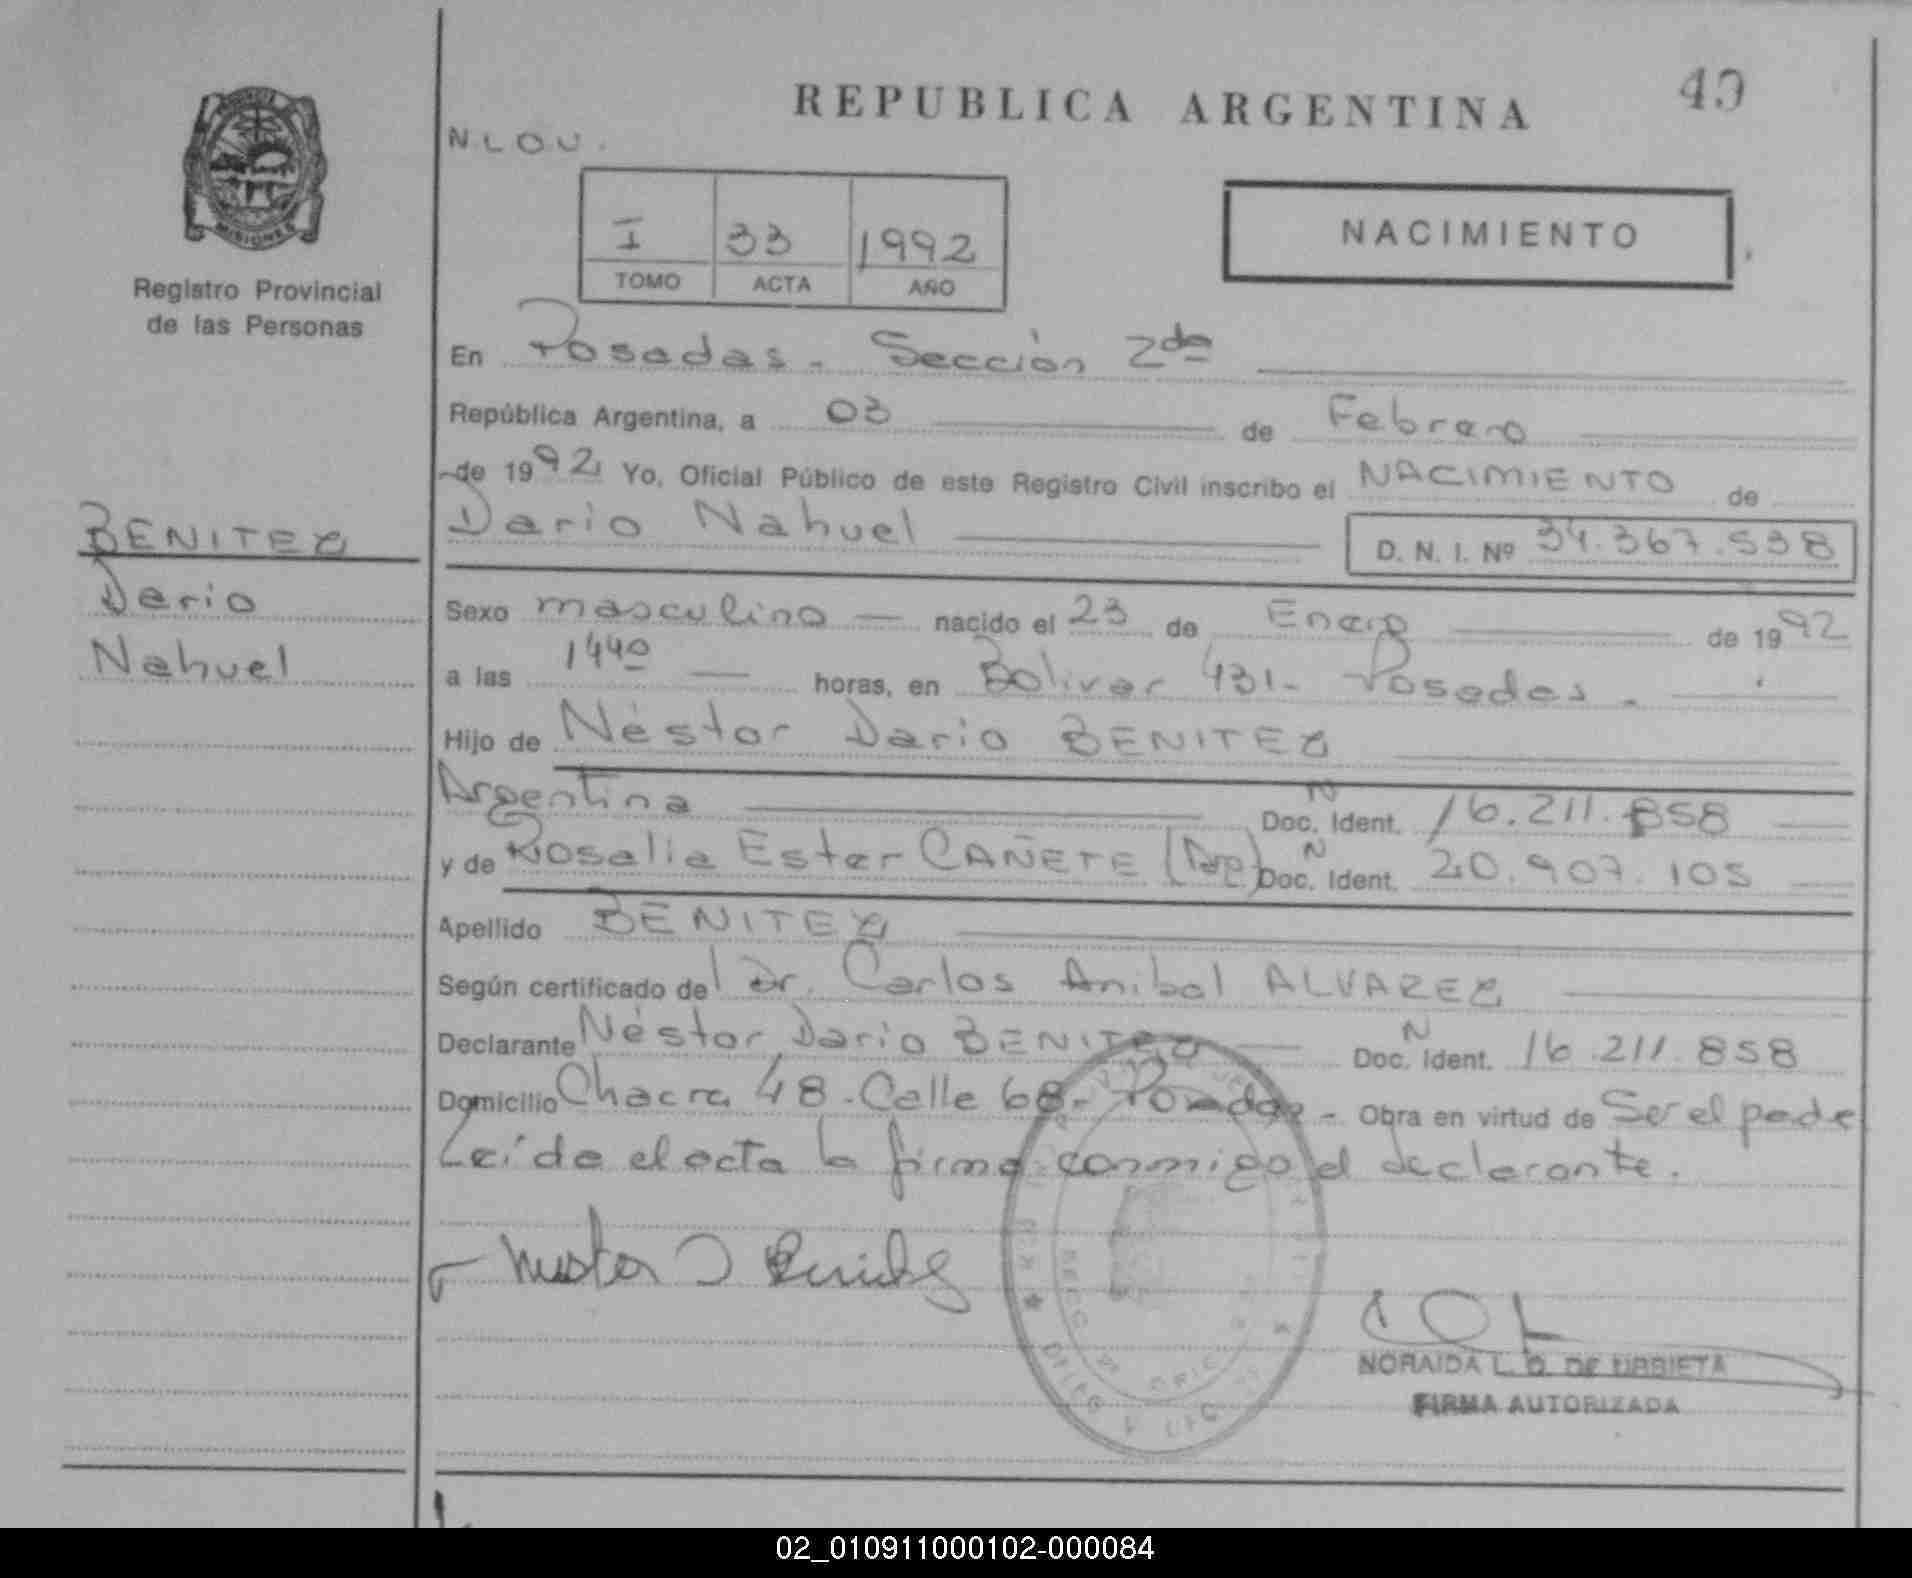 REPUBLICA ARGENTINA
49
N.L.O.U.
PROVINCIA
MISIONES
Registro Provincial
de las Personas
I 33 1992
TOMO ACTA AÑO
NACIMIENTO
En Posadas - Sección 2da
República Argentina, a 03 de Febrero
de 1992 Yo, Oficial Público de este Registro Civil inscribo el NACIMIENTO de
Dario Nahuel D. N. I. Nº 34.367.538
BENITEZ
Dario
Nahuel
Sexo masculino nacido el 23 de Enero de 1992
a las 1440 horas, en Bolivar 431 - Posadas -
Hijo de Néstor Dario BENITEZ
Argentina Doc. N Ident. 16.211.858
y de Rosalia Ester CAÑETE (Arg) Doc. N Ident. 20.907.105
Apellido BENITEZ
Según certificado del Dr. Carlos Anibal ALVAREZ
Declarante Néstor Dario BENITEZ Doc. N Ident. 16.211.858
Domicilio Chacra 48 - Calle 68 - Posadas - Obra en virtud de Ser el padre
Leída el acta la firma conmigo el declarante.
Nestor D Benitez
NORAIDA L. D. DE URRIETA
FIRMA AUTORIZADA
02_010911000102-000084